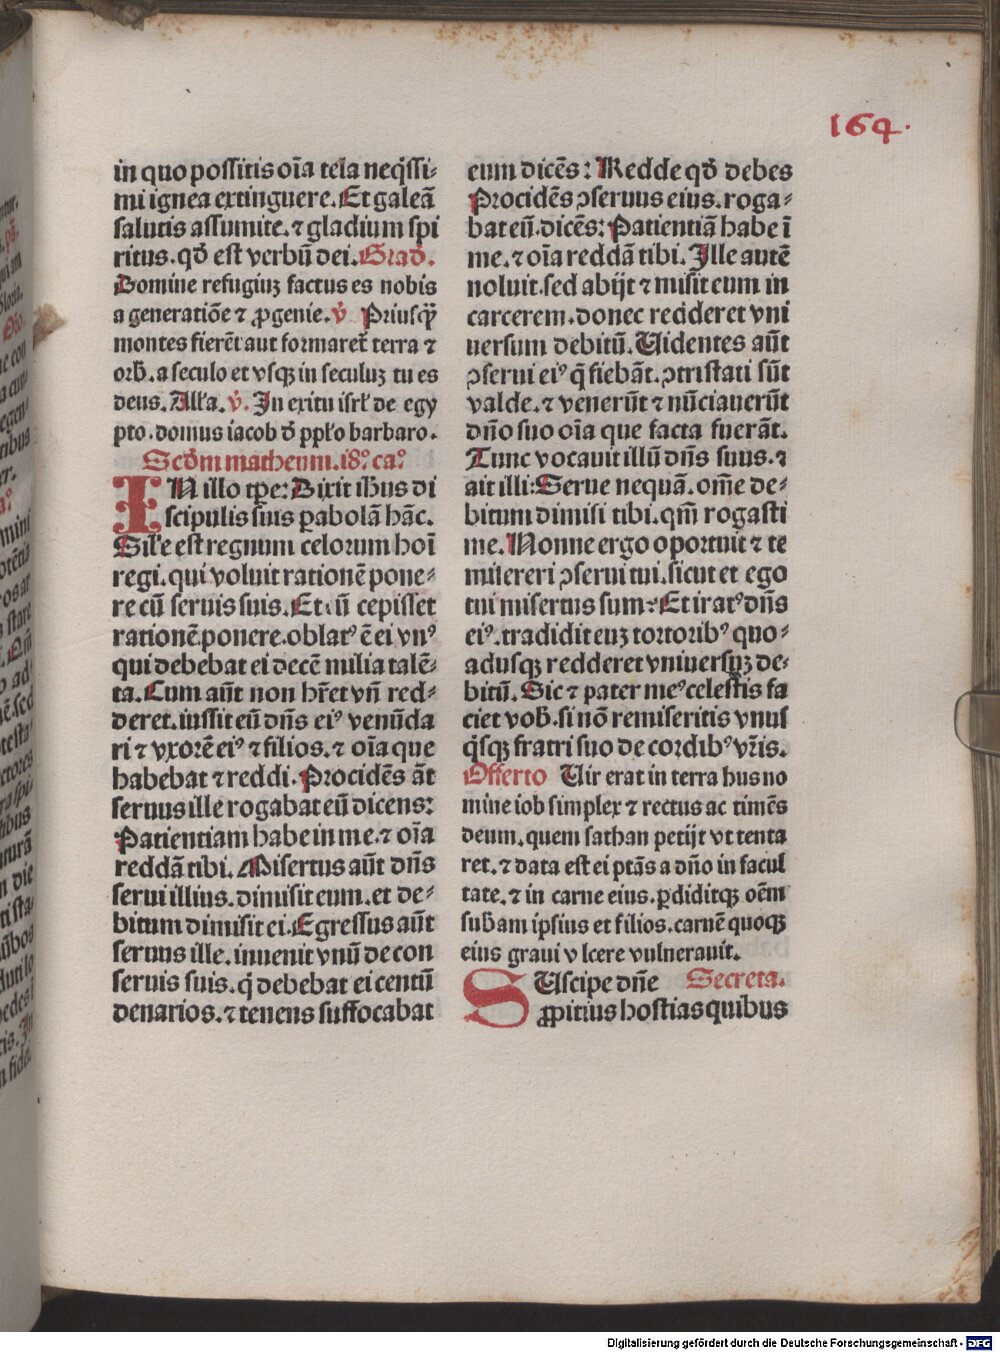 164.
in quo possitis oīa tela neq̄ssi-
mi ignea extinguere. Et galeā
salutis assumite. ⁊ gladium spi
ritus. qđ est verbū dei. Građ.
Domine refugiuꝫ factus es nobis
a generatiōe ⁊ ꝓgenie. v̇. Priusꝙ̄
montes fierēt aut formaret̄ terra ⁊
orb̄. a seculo et vsqꝫ in seculuꝫ tu es
deus. Alł'a. v̇. In exitu isrł' de egy
pto. domus iacob đ ppł'o barbaro.
Scđm matheum. 18.ͦ ca.ͦ
IN illo tp̄e: Dixit ih̄us di
scipulis suis ꝑabolā hāc.
Sił'e est regnum celorum hoī
regi. qui voluit rationē pone-
re cū seruis suis. Et cū cepisset
rationē ponere. oblatꝰ ē ei vnꝰ
qui debebat ei decē milia talē-
ta. Cum aūt non hr̄et vn̄ red-
deret. iussit eū dn̄s eiꝰ venūda
ri ⁊ vxorē eiꝰ ⁊ filios. ⁊ oīa que
habebat ⁊ reddi. Procidēs āt
seruus ille rogabat eū dicens:
Patientiam habe in me. ⁊ oīa
reddā tibi. Misertus aūt dn̄s
serui illius. dimisit eum. et de-
bitum dimisit ei. Egressus aūt
seruus ille. inuenit vnū de con
seruis suis. q̄ debebat ei centū
denarios. ⁊ tenens suffocabat
eum dicēs: Redde qđ debes
Procidēs ꝯseruus eius. roga-
bat eū. dicēs: Patientiā habe ī
me. ⁊ oīa reddā tibi. Ille autē
noluit. sed abijt ⁊ misit eum in
carcerem. donec redderet vni
uersum debitū. Uidentes aūt
ꝯserui eiꝰ q̄ fiebāt. ꝯtristati sūt
valde. ⁊ venerūt ⁊ nūciauerūt
dn̄o suo oīa que facta fuerāt.
Tunc vocauit illū dn̄s suus. ⁊
ait illi: Serue nequā. om̄e de-
bitum dimisi tibi. qm̄ rogasti
me. Nonne ergo oportuit ⁊ te
misereri ꝯserui tui. sicut et ego
tui misertus sum: Et iratꝰ dn̄s
eiꝰ. tradidit euꝫ tortoribꝰ quo-
adusqꝫ redderet vniuersuꝫ de-
bitū. Sic ⁊ pater meꝰ celestis fa
ciet vob̄. si nō remiseritis vnus
q̄sqꝫ fratri suo de cordibꝰ vr̄is.
Offerto Uir erat in terra hus no
mine iob simplex ⁊ rectus ac timēs
deum. quem sathan petijt vt tenta
ret. ⁊ data est ei ptās a dn̄o in facul
tate. ⁊ in carne eius. ꝑdiditqꝫ oēm
sub̄am ipsius et filios. carnē quoqꝫ
eius graui vlcere vulnerauit.
SUscipe dn̄e Secreta.
ꝓpitius hostias quibus
Digitalisierung gefördert durch die Deutsche Forschungsgemeinschaft - DFG